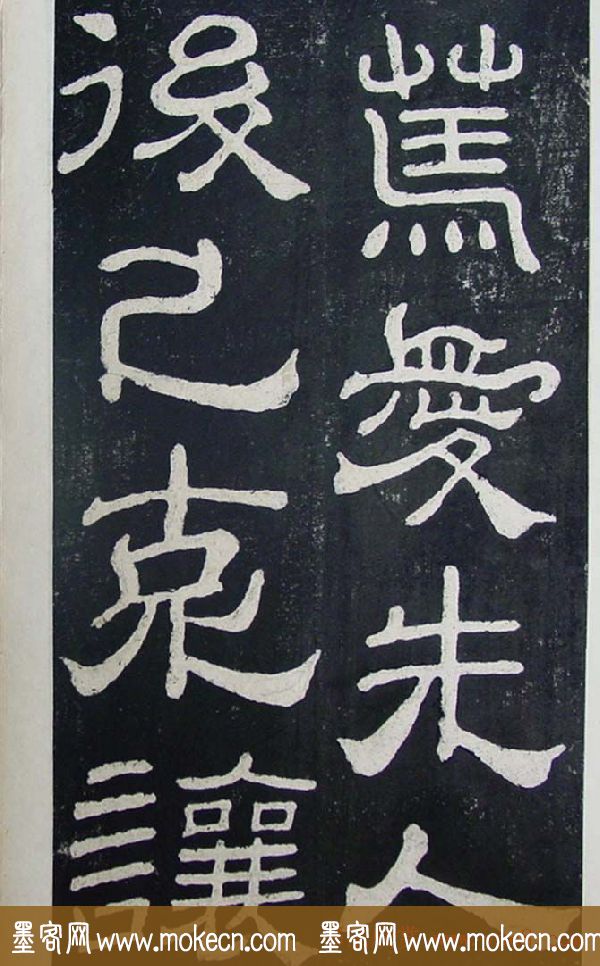 篤愛先人
後己克讓
墨客网 www.mokecn.com 墨客网 www.mokecn.com